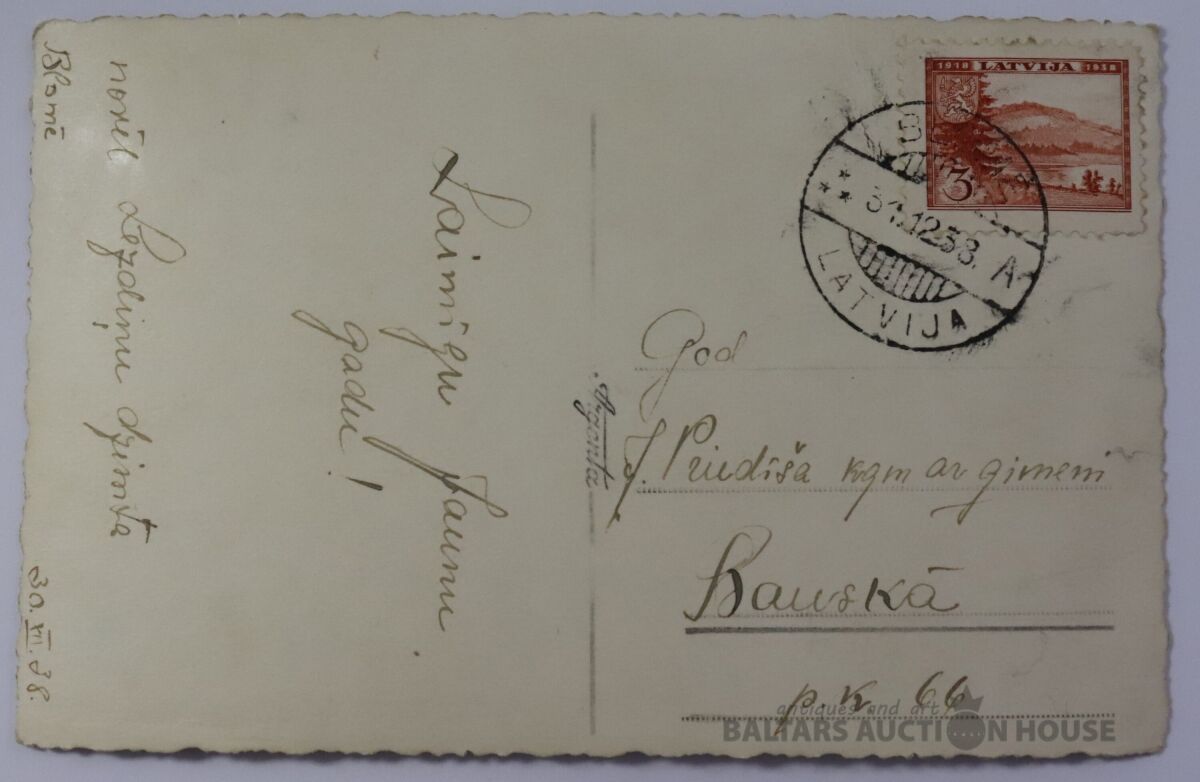 Laimīgu Jaunu
gadu!
novēl Lezdiņu dzimta
Blomē
30.XII.38.
Argenta
1918 LATVIJA 1938
3
31.12.38. A
LATVIJA
God
J. Priedīša kgm ar ģimeni
Bauskā
p.k 66
antiques and art
BALTARS AUCTION HOUSE